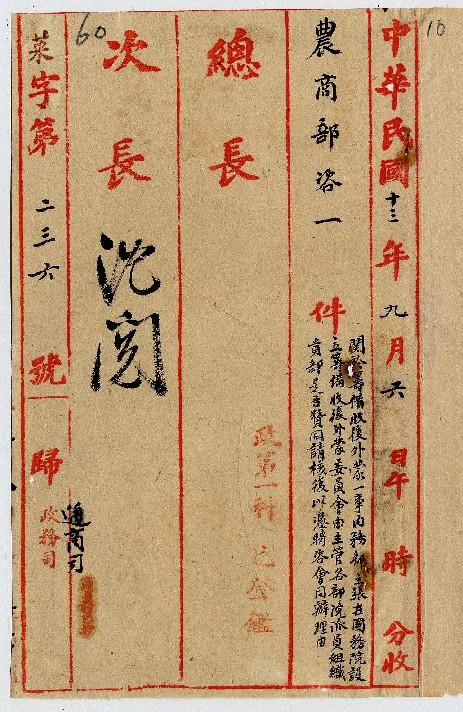 10
中華民國十三年九月六日午 時 分收
農商部咨一件
關於籌備收復外蒙一事內務部主張在國務院設
立籌備收復外蒙委員會由主管各部院派員組織
貴部是否贊同請核復以憑轉咨會同辦理由
總長
政第一科 已登鑑
次長 沈閱
60
菜字第 二三六 號 歸
通商司
政務司